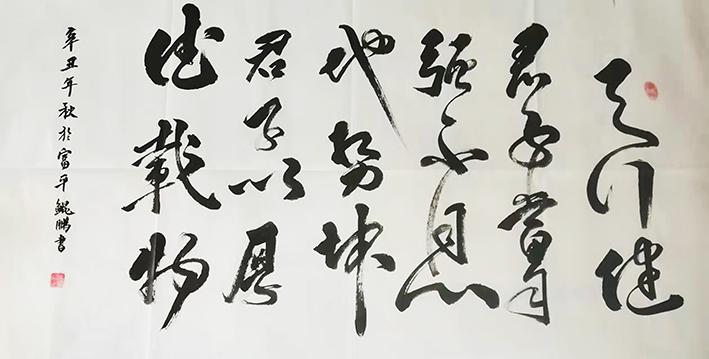 天行健
君子當自
強不息
地势坤
君子以厚
德載物
辛丑年秋於富平鯤鵬書